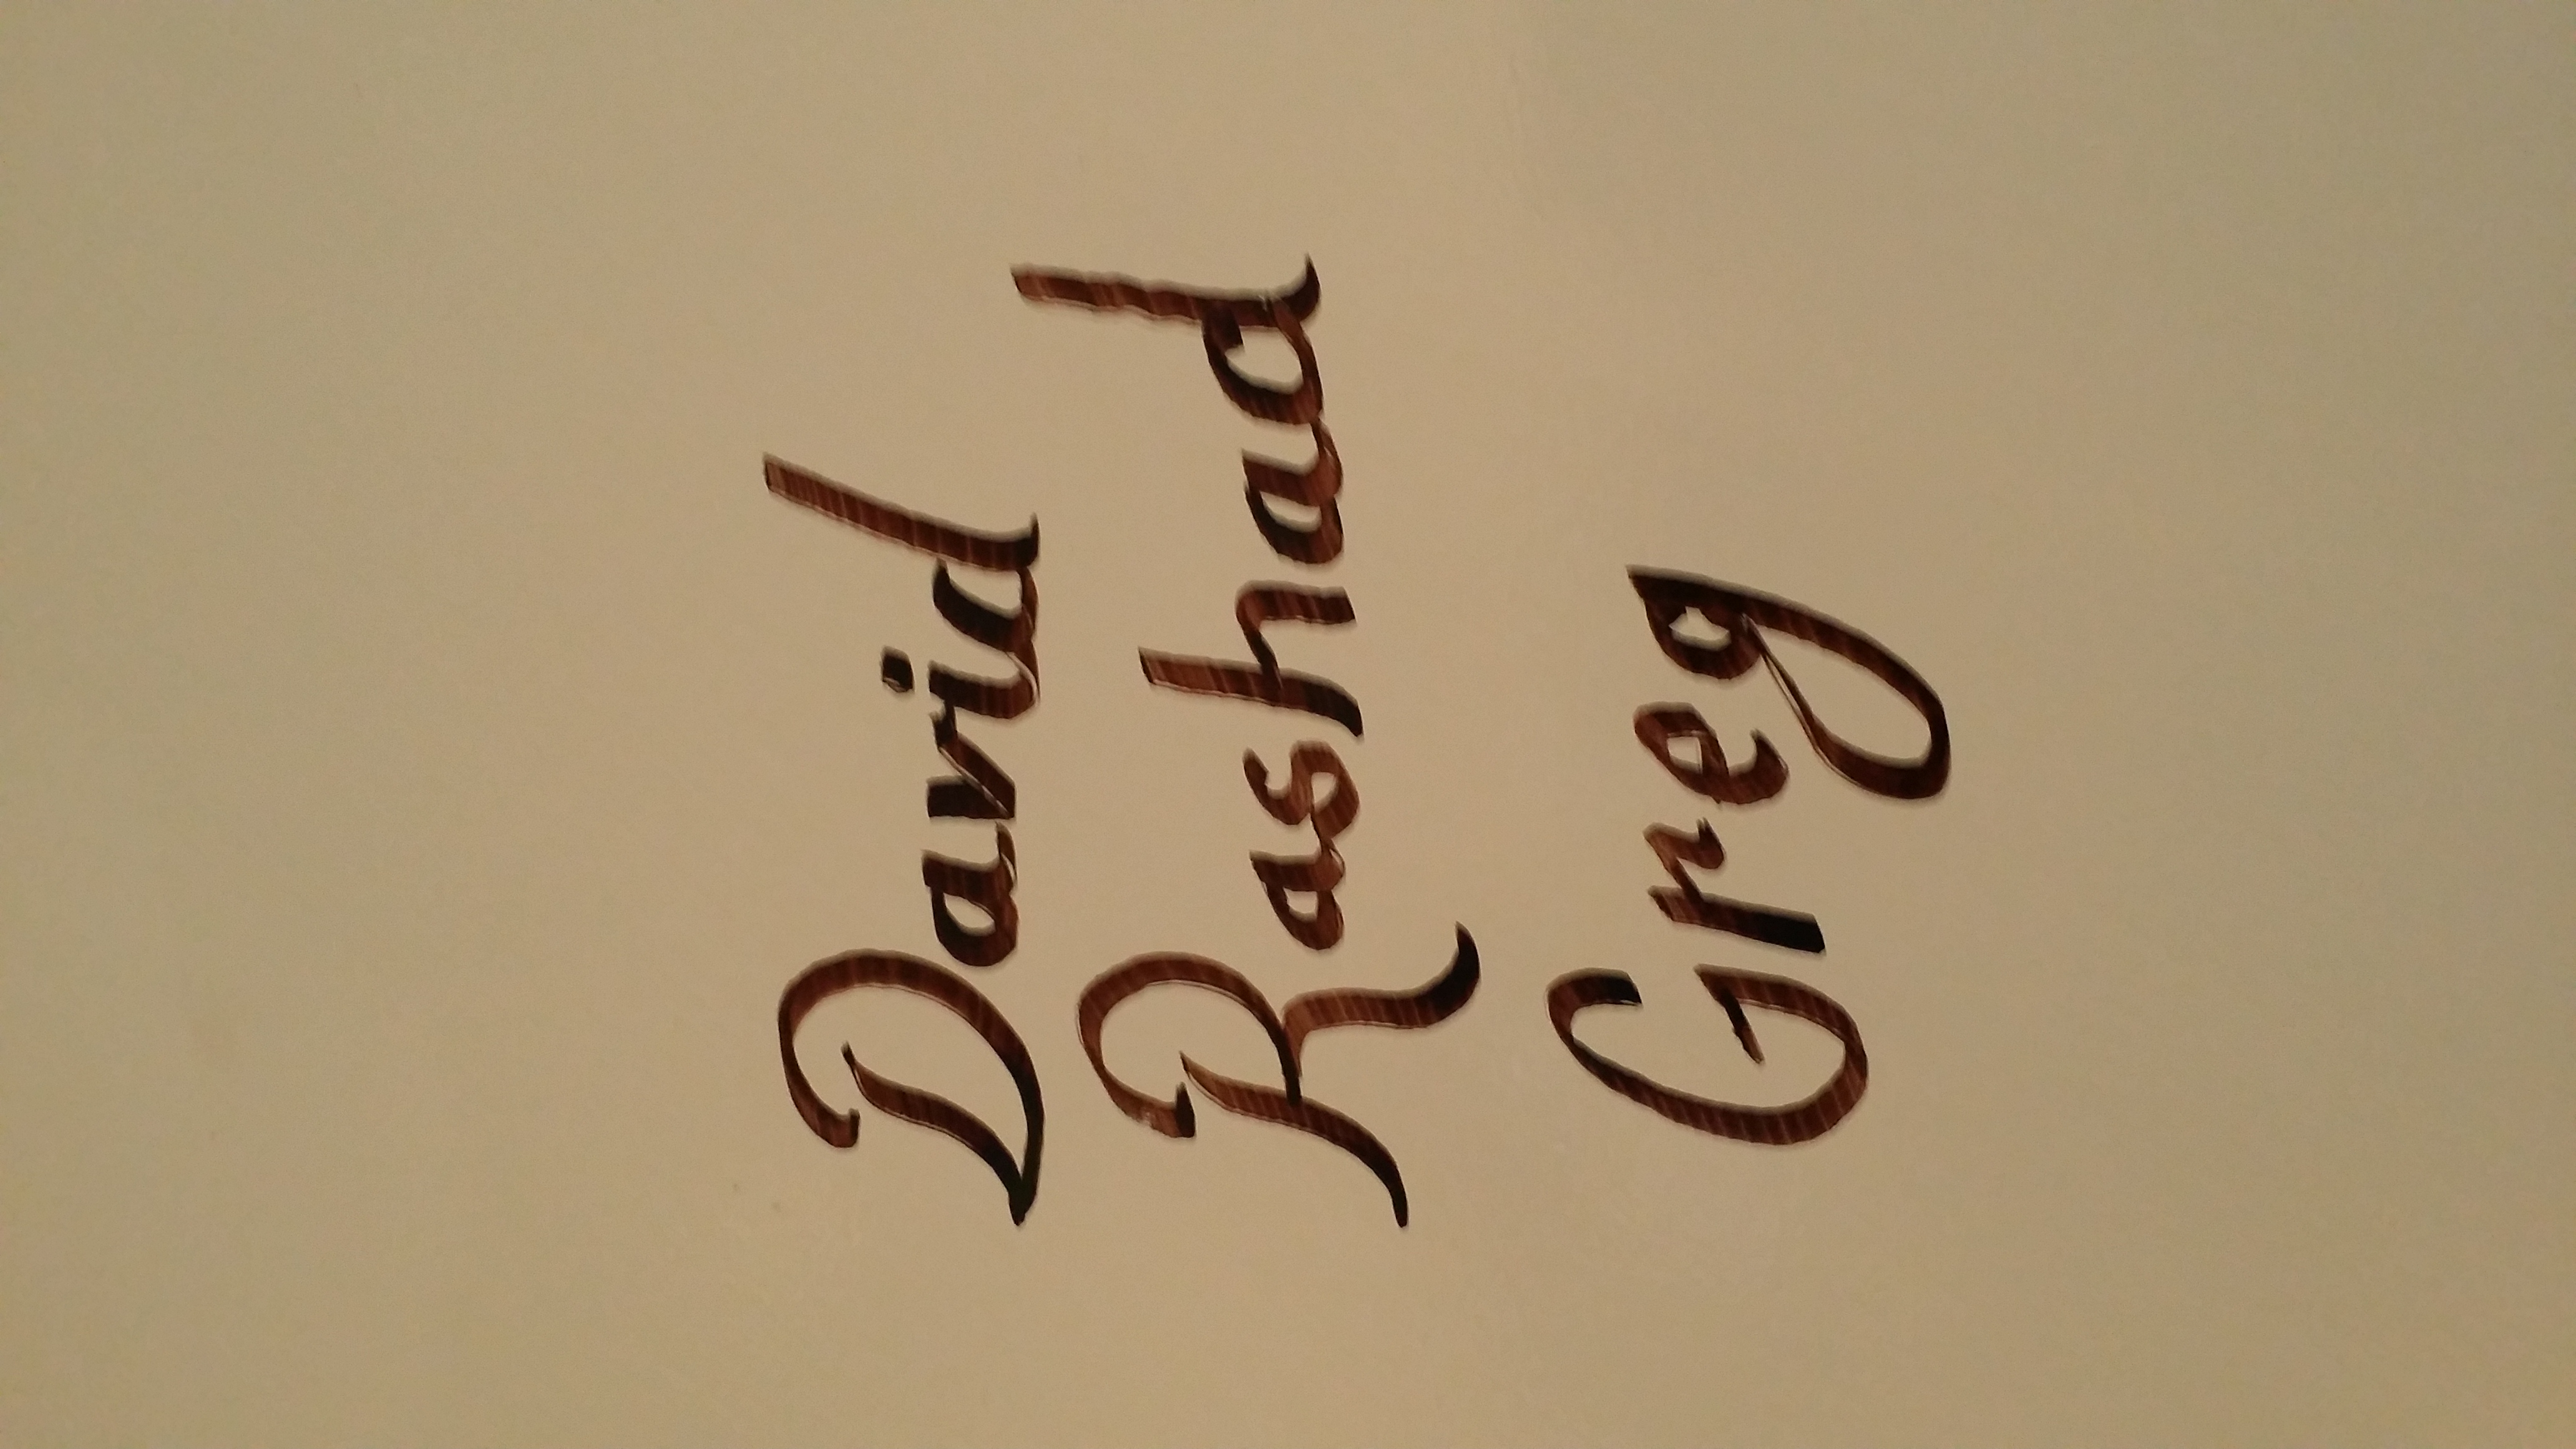 David
Rashad
Greg